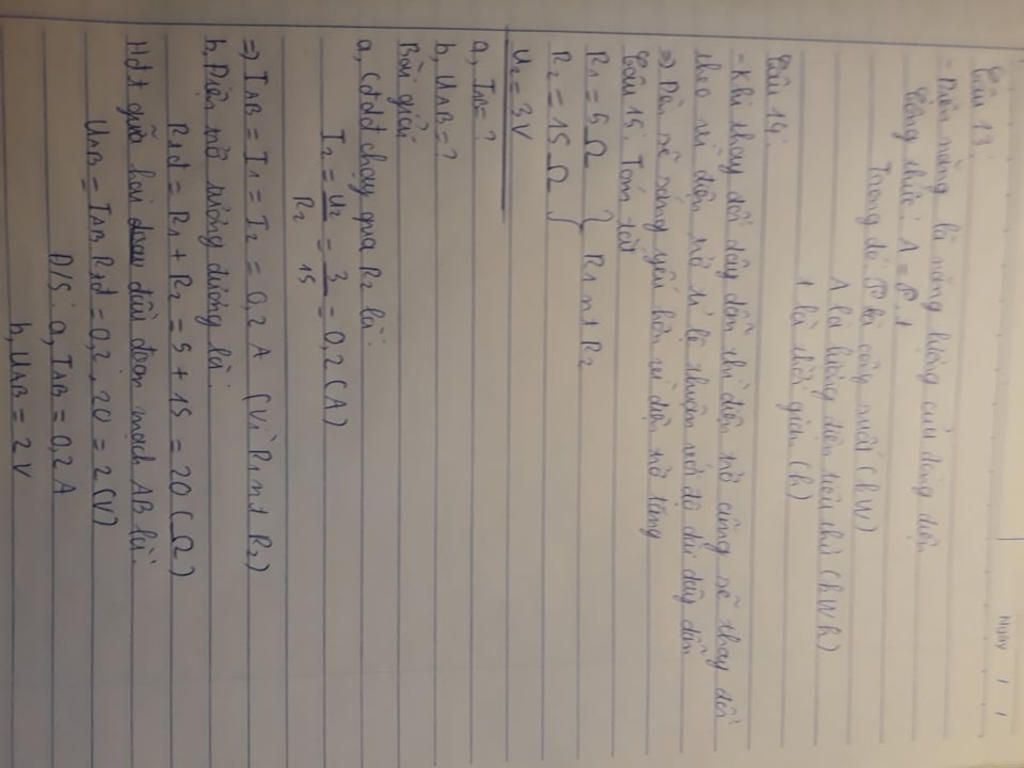 NGÀY / /
Câu 13:
- Điện năng là năng lượng của dòng điện
Công thức: A = P.t
Trong đó P là công suất (kW)
A là lượng điện tiêu thụ (kWh)
t là thời gian (h)
Câu 14:
- Khi thay đổi dây dẫn thì điện trở cũng sẽ thay đổi
theo vì điện trở tỉ lệ thuận với độ dài dây dẫn
=> Đèn sẽ sáng yếu hơn vì điện trở tăng
Câu 15: Tóm tắt
R1 = 5 Ω } R1 nt R2
R2 = 15 Ω
U2 = 3V
a, IAB = ?
b, UAB = ?
Bài giải
a, Cđdđ chạy qua R2 là:
I2 = U2/R2 = 3/15 = 0,2 (A)
=> IAB = I1 = I2 = 0,2 A (Vì R1 nt R2)
b, Điện trở tương đương là:
Rtđ = R1 + R2 = 5 + 15 = 20 (Ω)
Hđt giữa hai đầu đoạn mạch AB là:
UAB = IAB.Rtđ = 0,2.20 = 2 (V)
Đ/S: a, IAB = 0,2 A
b, UAB = 2 V